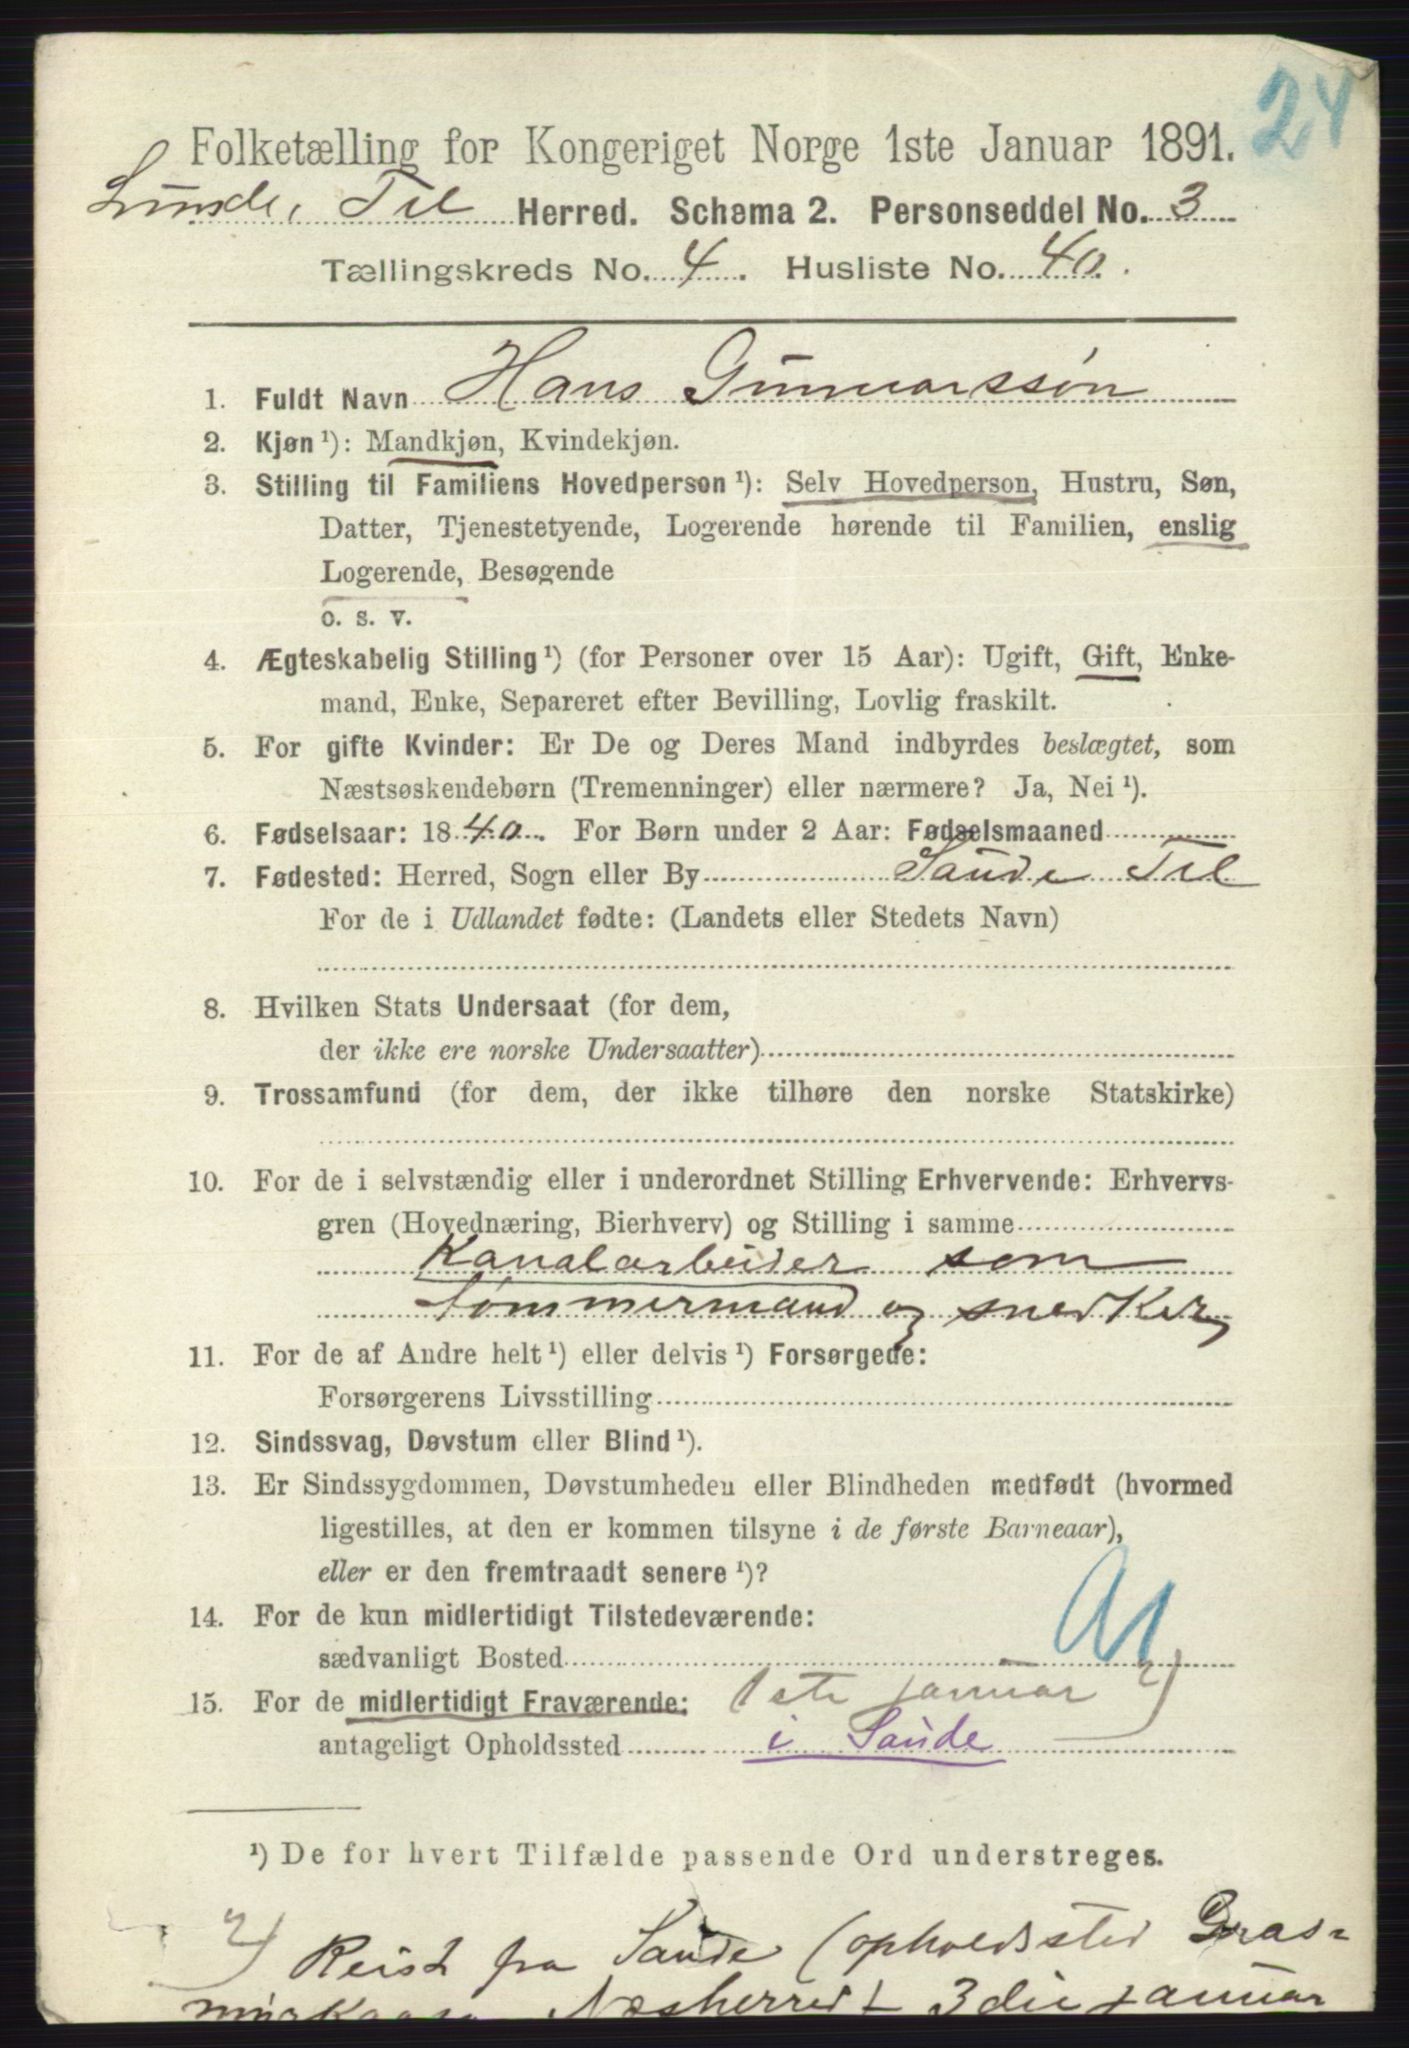 24
Folketælling for Kongeriget Norge 1ste Januar 1891.
Lunde, Tel Herred. Schema 2. Personseddel No. 3
Tællingskreds No. 4. Husliste No. 40.
1. Fuldt Navn Hans Gunnarssøn
2. Kjøn ¹): Mandkjøn, Kvindekjøn.
3. Stilling til Familiens Hovedperson ¹): Selv Hovedperson, Hustru, Søn,
Datter, Tjenestetyende, Logerende hørende til Familien, enslig
Logerende, Besøgende
o. s. v.
4. Ægteskabelig Stilling ¹) (for Personer over 15 Aar): Ugift, Gift, Enke-
mand, Enke, Separeret efter Bevilling, Lovlig fraskilt.
5. For gifte Kvinder: Er De og Deres Mand indbyrdes beslægtet, som
Næstsøskendebørn (Tremenninger) eller nærmere? Ja, Nei ¹).
6. Fødselsaar: 1840. For Børn under 2 Aar: Fødselsmaaned
7. Fødested: Herred, Sogn eller By Saude Tel
For de i Udlandet fødte: (Landets eller Stedets Navn)
8. Hvilken Stats Undersaat (for dem,
der ikke ere norske Undersaatter)
9. Trossamfund (for dem, der ikke tilhøre den norske Statskirke)
10. For de i selvstændig eller i underordnet Stilling Erhvervende: Erhvervs-
gren (Hovednæring, Bierhverv) og Stilling i samme
Kanalarbeider som
tømmermand og snedker
11. For de af Andre helt ¹) eller delvis ¹) Forsørgede:
Forsørgerens Livsstilling
12. Sindssvag, Døvstum eller Blind ¹).
13. Er Sindssygdommen, Døvstumheden eller Blindheden medfødt (hvormed
ligestilles, at den er kommen tilsyne i de første Barneaar),
eller er den fremtraadt senere ¹)?
14. For de kun midlertidigt Tilstedeværende:
sædvanligt Bosted
15. For de midlertidigt Fraværende: 1ste januar 2)
antageligt Opholdssted i Saude
¹) De for hvert Tilfælde passende Ord understreges.
2) Reist fra Saude (opholdssted Gras-
Næsherred 3die januar